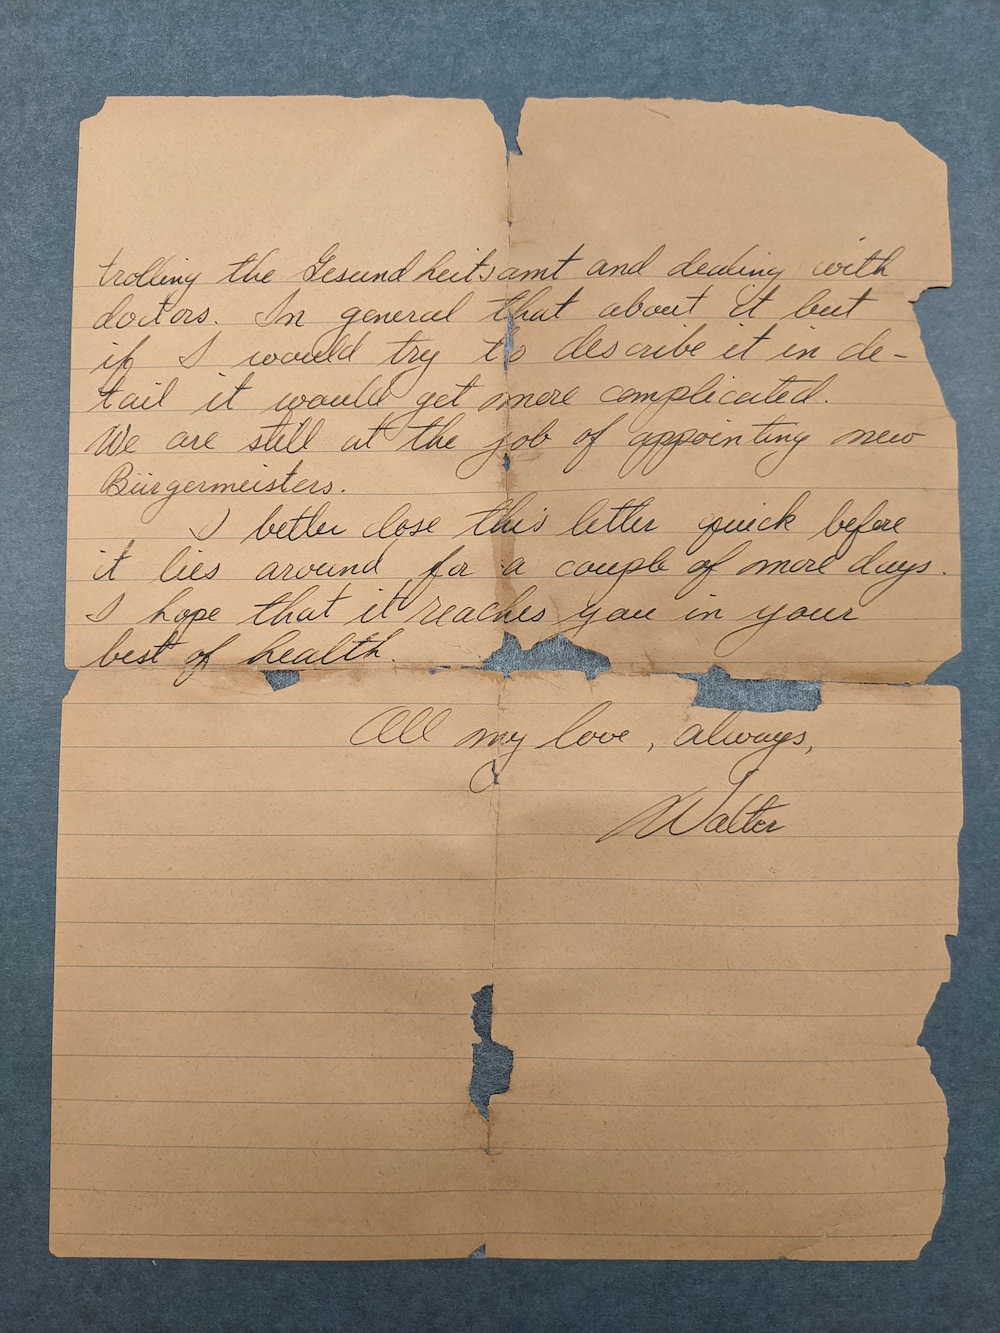 trolling the Gesundheitsamt and dealing with
doctors. In general that about it but
if I would try to describe it in de-
tail it would get more complicated.
We are still at the job of appointing new
Bürgermeisters.
I better close this letter quick before
it lies around for a couple of more days.
I hope that it reaches you in your
best of health.
All my love, always,
Walter